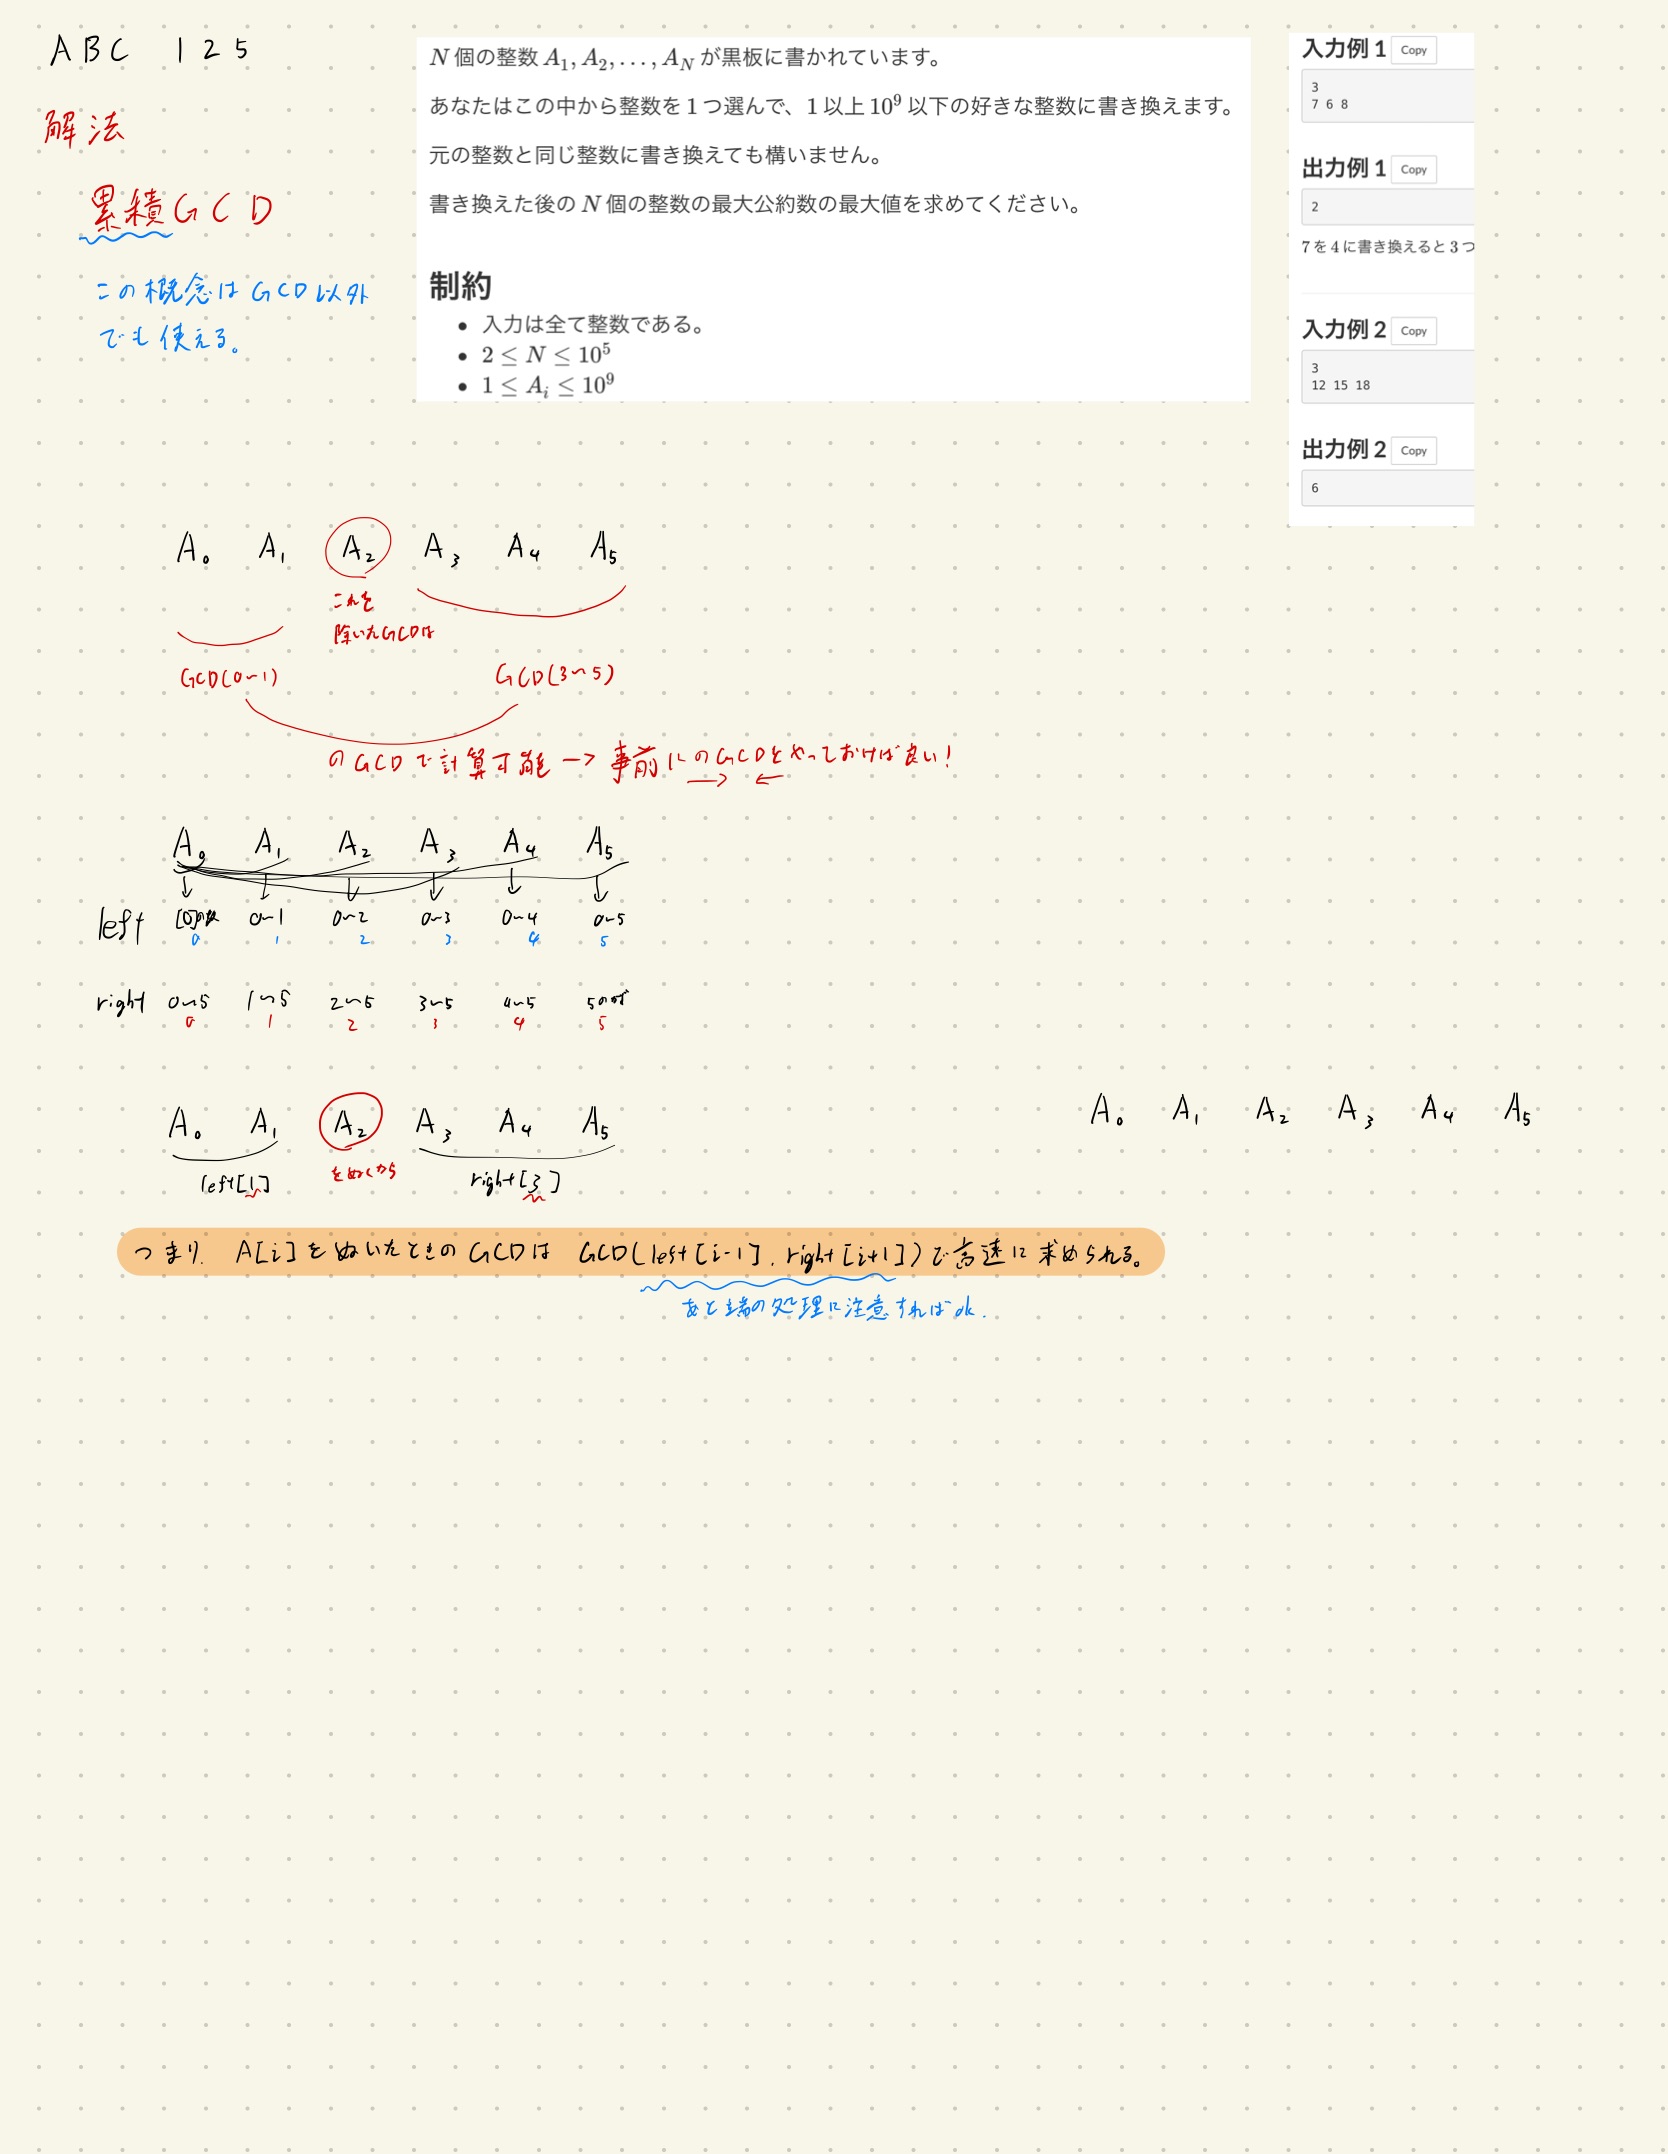 ABC 125
解法
累積GCD
この概念はGCD以外
でも使える。
N 個の整数 A₁, A₂, …, A_N が黒板に書かれています。
あなたはこの中から整数を 1 つ選んで、1 以上 10⁹ 以下の好きな整数に書き換えます。
元の整数と同じ整数に書き換えても構いません。
書き換えた後の N 個の整数の最大公約数の最大値を求めてください。
制約
• 入力は全て整数である。
• 2 ≤ N ≤ 10⁵
• 1 ≤ Aᵢ ≤ 10⁹
入力例 1 Copy
3
7 6 8
出力例 1 Copy
2
7 を 4 に書き換えると 3 つ
入力例 2 Copy
3
12 15 18
出力例 2 Copy
6
A₀ A₁ A₂ A₃ A₄ A₅
これを
除いたGCDは
GCD(0~1) GCD(3~5)
のGCDで計算可能 → 事前にのGCDをやっておけば良い!
→ ←
A₀ A₁ A₂ A₃ A₄ A₅
left [0]の 0~1 0~2 0~3 0~4 0~5
0 1 2 3 4 5
right 0~5 1~5 2~5 3~5 4~5 5の
0 1 2 3 4 5
A₀ A₁ A₂ A₃ A₄ A₅
left[1] をぬくから right[3]
A₀ A₁ A₂ A₃ A₄ A₅
つまり. A[i]をぬいたときのGCDは GCD(left[i-1], right[i+1])で高速に求められる。
あと端の処理に注意すればok.